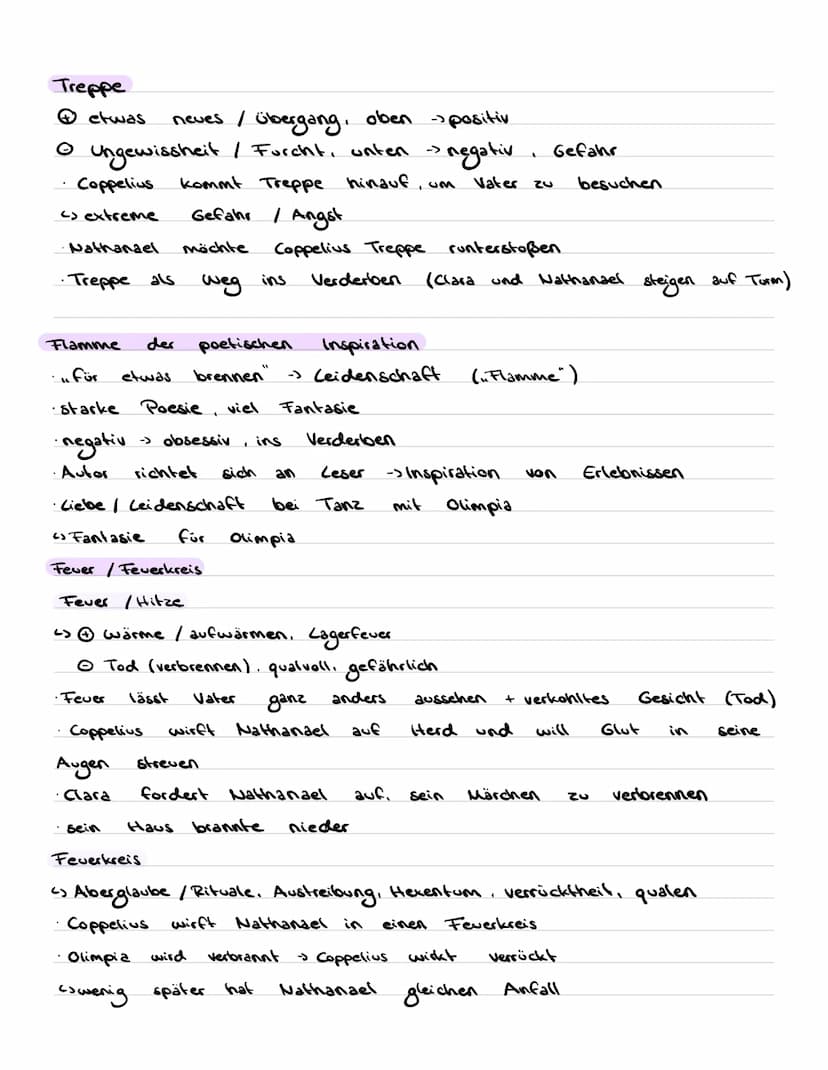 Treppe
⊕ etwas neues / Übergang, oben -> positiv
⊖ Ungewissheit / Furcht, unten -> negativ, Gefahr
· Coppelius kommt Treppe hinauf, um Vater zu besuchen
↳ extreme Gefahr / Angst
· Nathanael möchte Coppelius Treppe runterstoßen
· Treppe als Weg ins Verderben (Clara und Nathanael steigen auf Turm)
Flamme der poetischen Inspiration
· „für etwas brennen" -> Leidenschaft („Flamme")
· starke Poesie, viel Fantasie
· negativ -> obsessiv, ins Verderben
· Autor richtet sich an Leser -> Inspiration von Erlebnissen
· Liebe / Leidenschaft bei Tanz mit Olimpia
↳ Fantasie für Olimpia
Feuer / Feuerkreis
Feuer / Hitze
↳ ⊕ wärme / aufwärmen, Lagerfeuer
⊖ Tod (verbrennen), qualvoll, gefährlich
· Feuer lässt Vater ganz anders aussehen + verkohltes Gesicht (Tod)
· Coppelius wirft Nathanael auf Herd und will Glut in seine
Augen streuen
· Clara fordert Nathanael auf, sein Märchen zu verbrennen
· sein Haus brannte nieder
Feuerkreis
↳ Aberglaube / Rituale, Austreibung, Hexentum, verrücktheit, qualen
· Coppelius wirft Nathanael in einen Feuerkreis
· Olimpia wird verbrannt -> Coppelius wirkt verrückt
↳ wenig später hat Nathanael gleichen Anfall